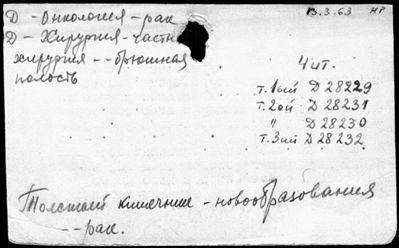 Д - Онкология - рак
13.3.63 НР
Д - Хирургия - частн
хирургия - - брюшная
полость
Чит.
т. 1ый Д 28229
т. 2ой Д 28231
" Д 28230
т. 3ий Д 28232
Толстый кишечник - новообразования
- - рак.